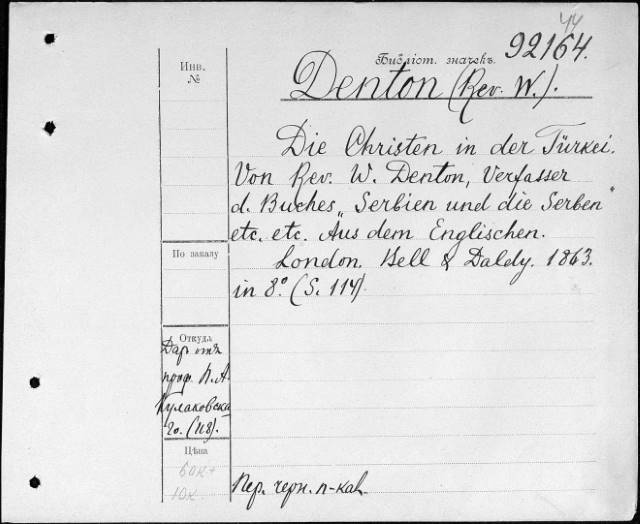 44
Библіот. значекъ. 92164.
Инв.
№
Denton (Rev. W.).
Die Christen in der Türkei.
Von Rev. W. Denton, Verfasser
d. Buches „Serbien und die Serben"
etc. etc. Aus dem Englischen.
London. Bell & Daldy. 1863.
in 8º. (S. 114)
По заказу
Откуда
Дар отъ
проф. П. А.
Кулаковска
го. (118).
Цѣна
60к+
10к.
Пер. черн. п-кал.